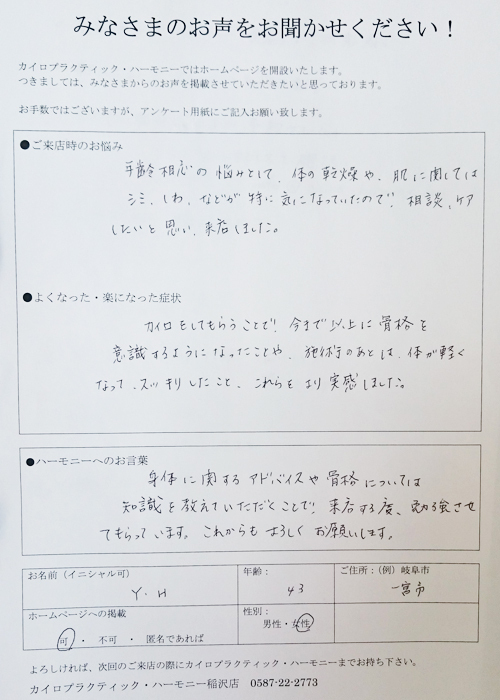 みなさまのお声をお聞かせください！
カイロプラクティック・ハーモニーではホームページを開設いたします。
つきましては、みなさまからのお声を掲載させていただきたいと思っております。
お手数ではございますが、アンケート用紙にご記入お願い致します。
●ご来店時のお悩み
年齢相応の悩みとして、体の乾燥や、肌に関しては
シミ、しわ、などが特に気になっていたので 相談、ケア
したいと思い、来店しました。
●よくなった・楽になった症状
カイロをしてもらうことで、今まで以上に骨格を
意識するようになったことや、施術のあとは、体が軽く
なって、スッキリしたこと、これらをより実感しました。
●ハーモニーへのお言葉
身体に関するアドバイスや骨格については
知識を教えていただくことで、来店する度、勉強させ
てもらっています。これからもよろしくお願いします。
お名前（イニシャル可） 年齢： ご住所：（例）岐阜市
Y・H 43 一宮市
ホームページへの掲載 性別：
男性・女性
可 ・ 不可 ・ 匿名であれば
よろしければ、次回のご来店の際にカイロプラクティック・ハーモニーまでお持ち下さい。
カイロプラクティック・ハーモニー稲沢店 0587-22-2773